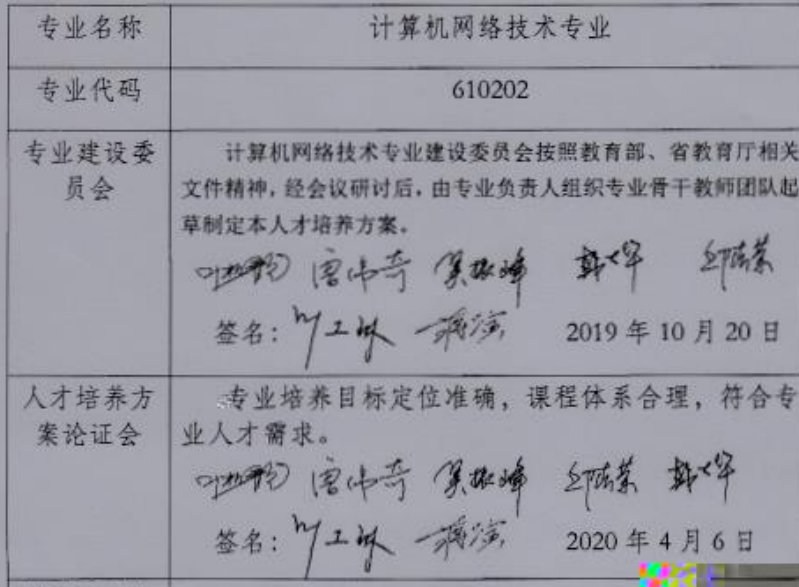 专业名称
计算机网络技术专业
专业代码
610202
专业建设委
员会
计算机网络技术专业建设委员会按照教育部、省教育厅相关
文件精神，经会议研讨后，由专业负责人组织专业骨干教师团队起
草制定本人才培养方案。
签名：
2019 年 10 月 20 日
人才培养方
案论证会
专业培养目标定位准确，课程体系合理，符合专
业人才需求。
签名：
2020 年 4 月 6 日